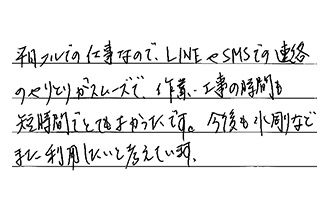 平日フルでの仕事なので、LINEやSMSでの連絡
のやりとりがスムーズで、作業、工事の時間も
短時間でとてもよかったです。今後も水廻など
また利用したいと考えています。